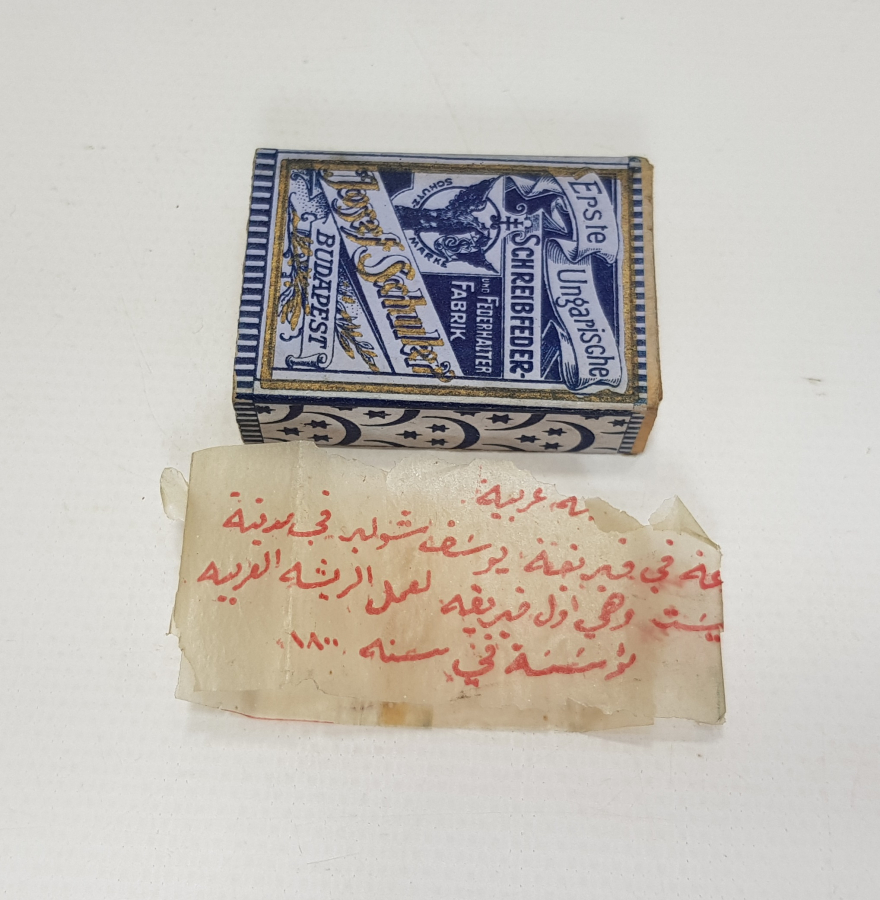 Erste Ungarische
SCHREIBFEDER-
UND FEDERHALTER
FABRIK
SCHUTZ MARKE
Josef Schuler
BUDAPEST
ـه عربية
في فبريقة يوسف شولير في مدينة
ـست وهي اول فبريقه لعمل الريشه العربيه
مؤسسة في سنه ١٨٠٠